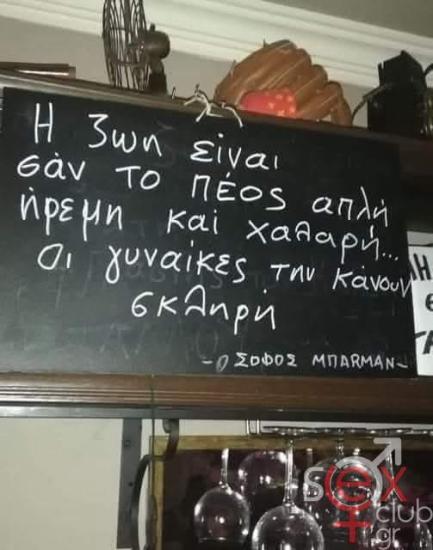 Η ζωη είναι
σάν το πέος απλή
ήρεμη καί χαλαρή...
οι γυναίκες την κάνουν
σκληρή
- Ο ΣΟΦΟΣ ΜΠΑΡΜΑΝ -
sex
club
gr